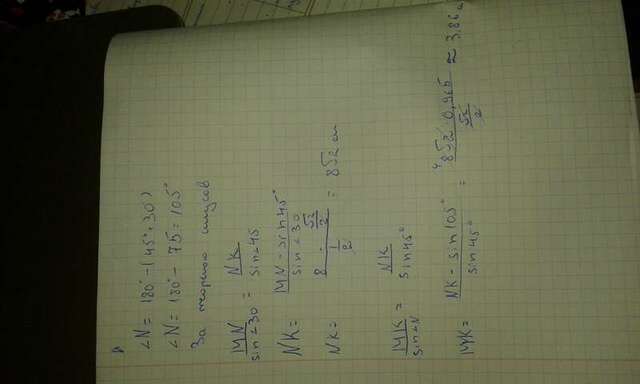 ∠N = 180° - (45° + 30°)
∠N = 180° - 75 = 105°
За теоремою синусов
MN / sin∠30 = NK / sin∠45
NK = MN · sin45° / sin∠30
NK = 8 · √2/2 / 1/2 = 8√2 см
MK / sin∠N = NK / sin45°
MK = NK · sin105° / sin45° = 8√2 · 0,965 / √2/2 ≈ 3.86